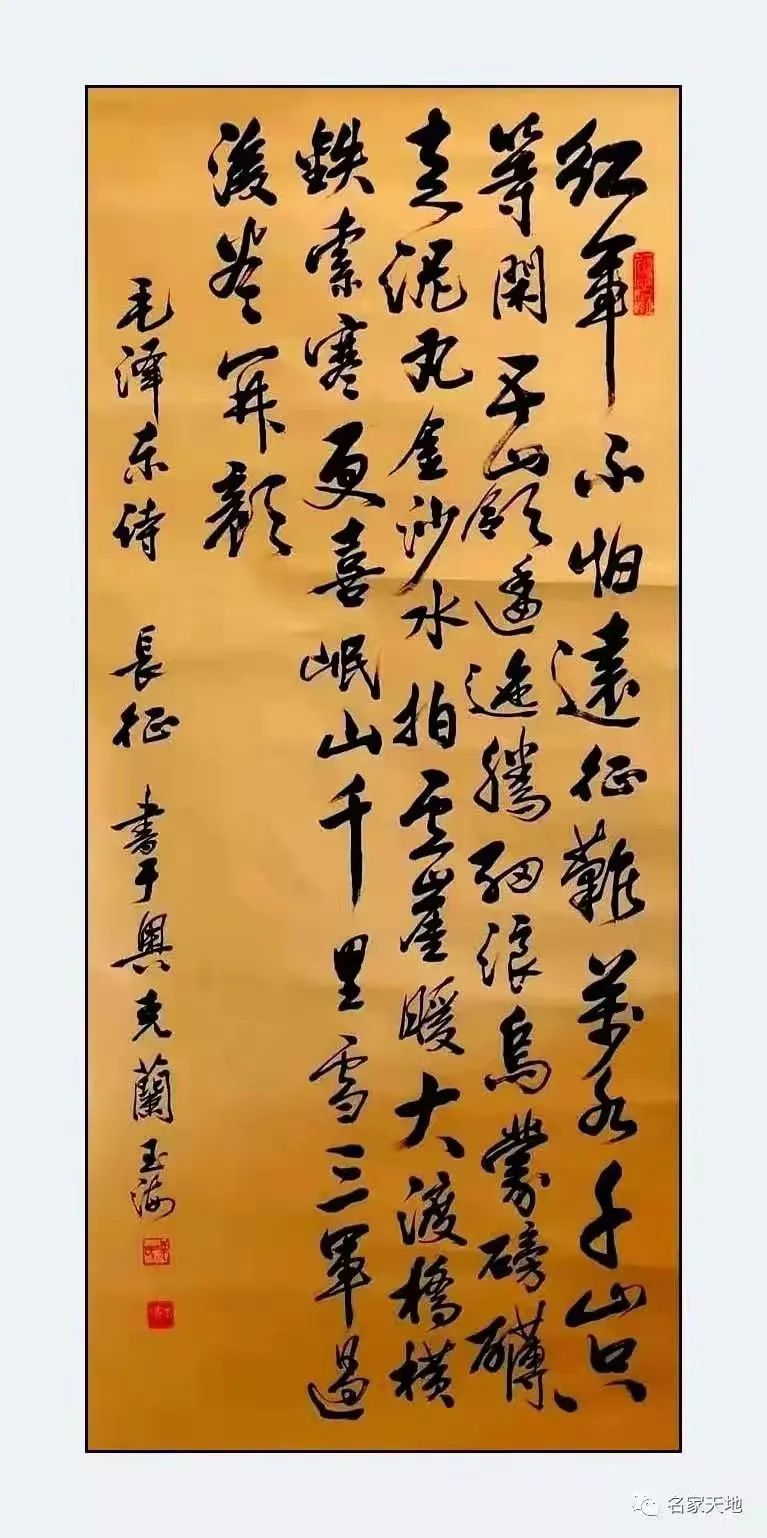 紅軍不怕遠征難萬水千山只
等閑五嶺逶迤騰細浪烏蒙磅礴
走泥丸金沙水拍云崖暖大渡橋橫
鉄索寒更喜岷山千里雪三軍過
後盡開顏
毛泽东诗 長征 書于奥克蘭玉海
名家天地